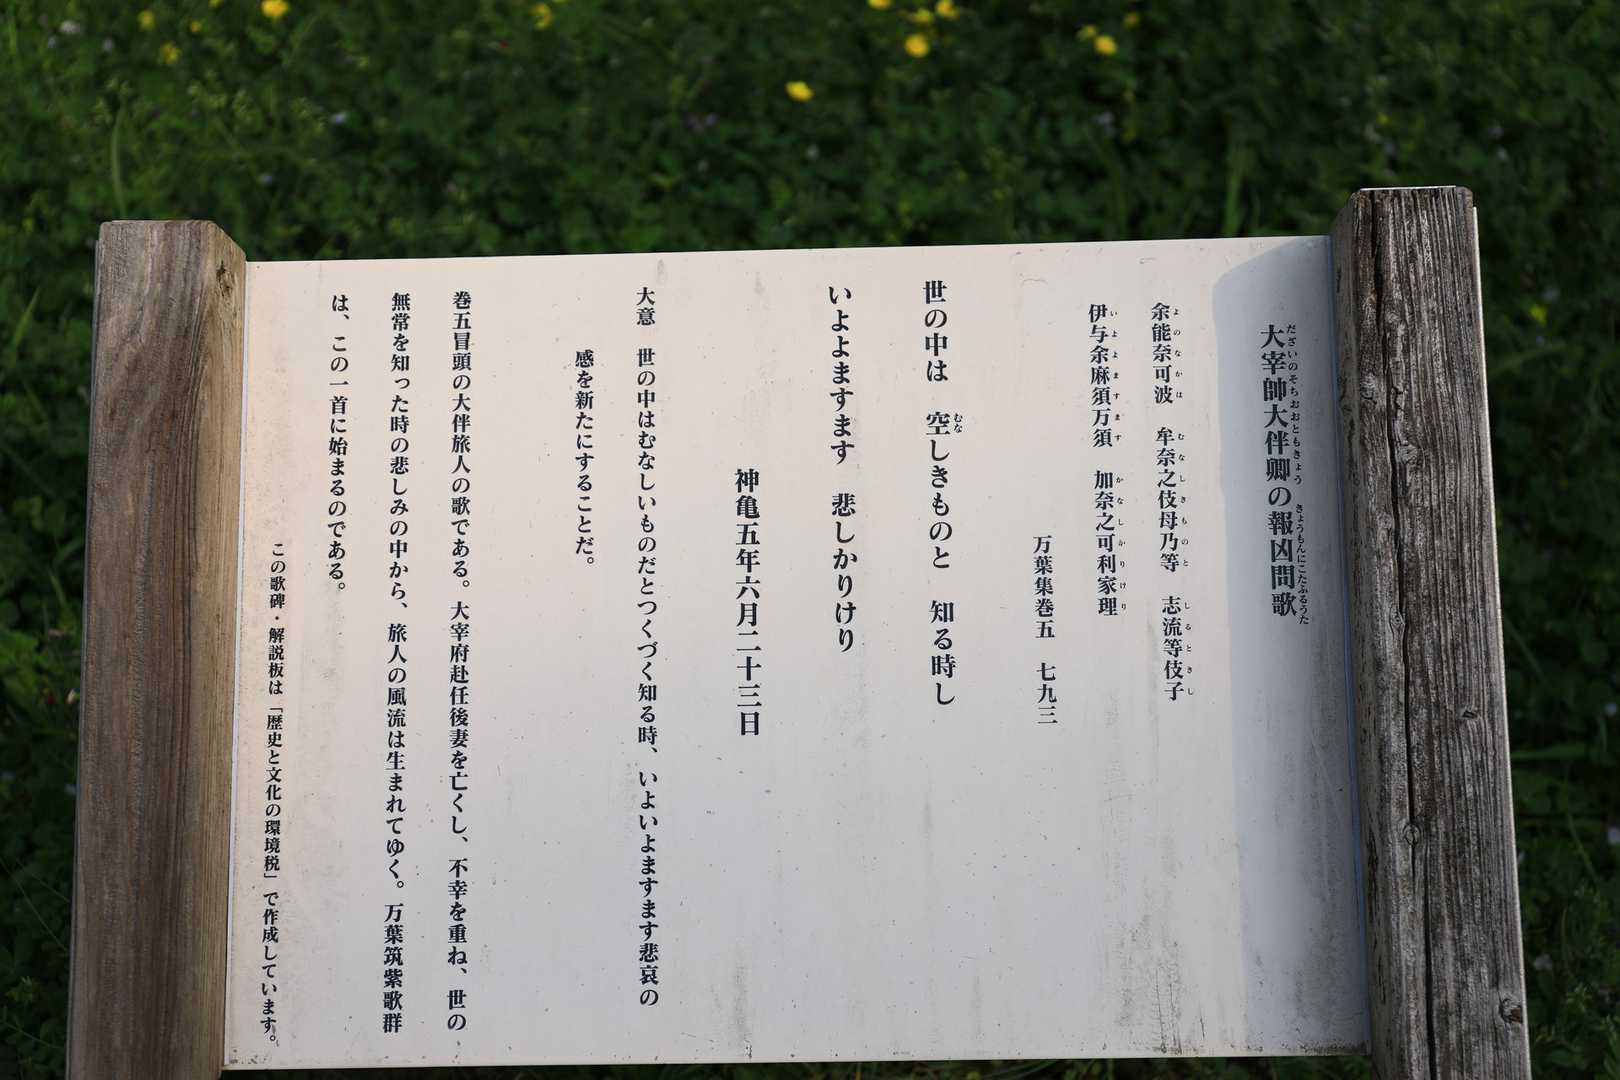 大宰帥大伴卿の報凶問歌
だざいのそちおおともきょう きょうもんにこたふるうた
余能奈可波 牟奈之伎母乃等 志流等伎子
よのなかは むなしきものと しるときし
伊与余麻須万須 加奈之可利家理
いよよますます かなしかりけり
万葉集巻五 七九三
世の中は 空しきものと 知る時し
むな
いよよますます 悲しかりけり
神亀五年六月二十三日
大意 世の中はむなしいものだとつくづく知る時、いよいよますます悲哀の
感を新たにすることだ。
巻五冒頭の大伴旅人の歌である。大宰府赴任後妻を亡くし、不幸を重ね、世の
無常を知った時の悲しみの中から、旅人の風流は生まれてゆく。万葉筑紫歌群
は、この一首に始まるのである。
この歌碑・解説板は「歴史と文化の環境税」で作成しています。